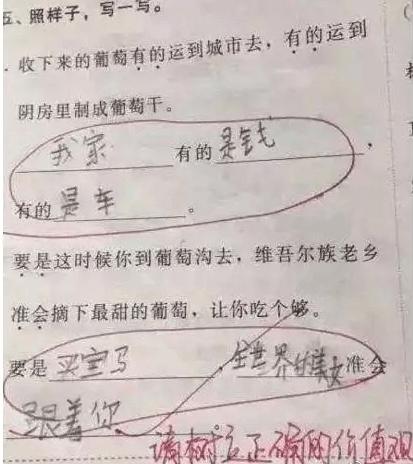 五、照样子，写一写。
. 收下来的葡萄有的运到城市去，有的运到
阴房里制成葡萄干。
我家 有的是钱，
有的是车。
要是这时候你到葡萄沟去，维吾尔族老乡
准会摘下最甜的葡萄，让你吃个够。
要是买宝马，全世界的美女准会
跟着你
请树立正确的价值观